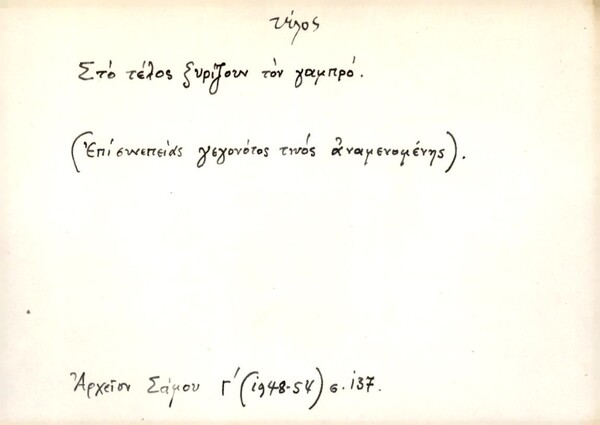 τέλος
Στό τέλος ξυρίζουν τόν γαμπρό.
(Ἐπί συνεπείας γεγονότος τινός ἀναμενομένης).
Ἀρχεῖον Σάμου Γ' (1948-54) σ. 137.